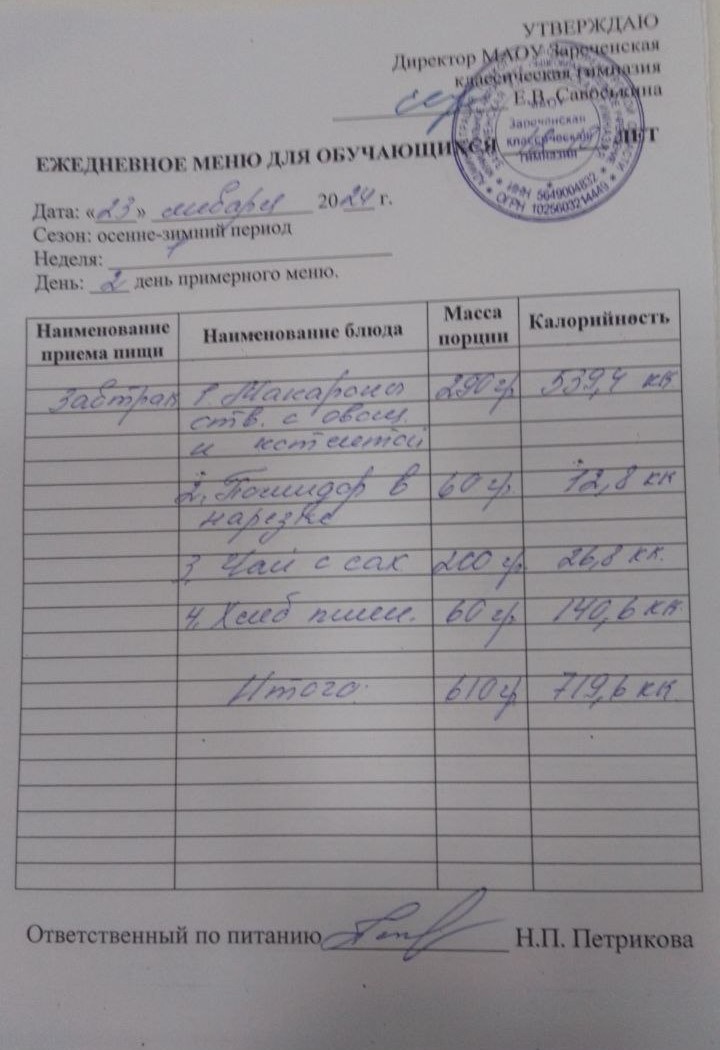 УТВЕРЖДАЮ
Директор МАОУ Зареченская
классическая гимназия
Е.В. Савоськина
Зареченская
классическая
гимназия
ИНН 5649004832
ОГРН 1025603214449
ЕЖЕДНЕВНОЕ МЕНЮ ДЛЯ ОБУЧАЮЩИХСЯ ЛЕТ
Дата: «23» января 2024 г.
Сезон: осенне-зимний период
Неделя: 1
День: 2 день примерного меню.
Наименование приема пищи Наименование блюда Масса порции Калорийность
Завтрак 1. Макароны 290гр 539,4 кк
отв. с овощ.
и котлетой
2. Помидор в 60 гр 12,8 кк
нарезке
3. Чай с сах 200 гр. 26,8 кк.
4. Хлеб пшен. 60 гр 140,6 кк
Итого: 610гр 719,6 кк
Ответственный по питанию Н.П. Петрикова